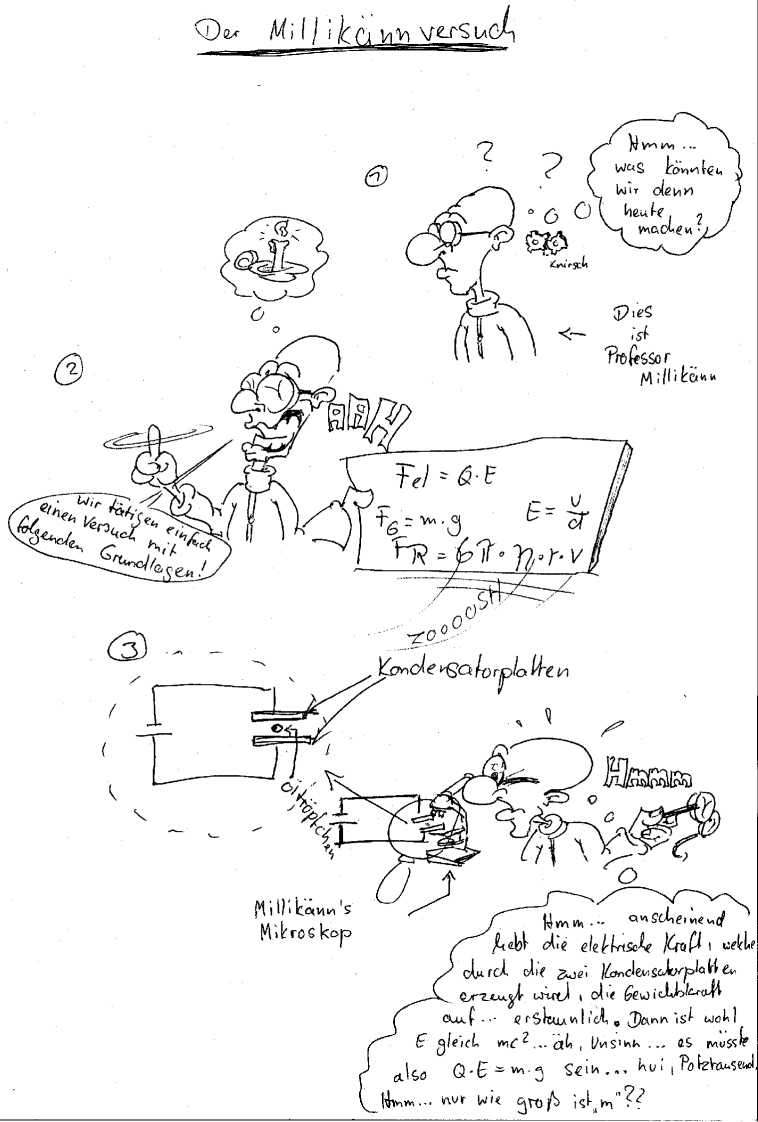 Der Millikännversuch
1
?
?
Hmm...
was könnten
wir denn
heute
machen?
Knirsch
Dies
ist
Professor
Millikänn
2
AAH
wir tätigen einfach
einen Versuch mit
folgenden Grundlagen!
Fel = Q·E
FG = m·g
E = U/d
FR = 6π·η·r·v
ZOOOOSH
3
Kondensatorplatten
Öltröpfchen
Hmmm
Millikänn's
Mikroskop
Hmm... anscheinend
hebt die elektrische Kraft, welche
durch die zwei Kondensatorplatten
erzeugt wird, die Gewichtskraft
auf... erstaunlich. Dann ist wohl
E gleich mc²...äh, Unsinn... es müsste
also Q·E = m·g sein... hui, Potztausend,
Hmm... nur wie groß ist „m"??